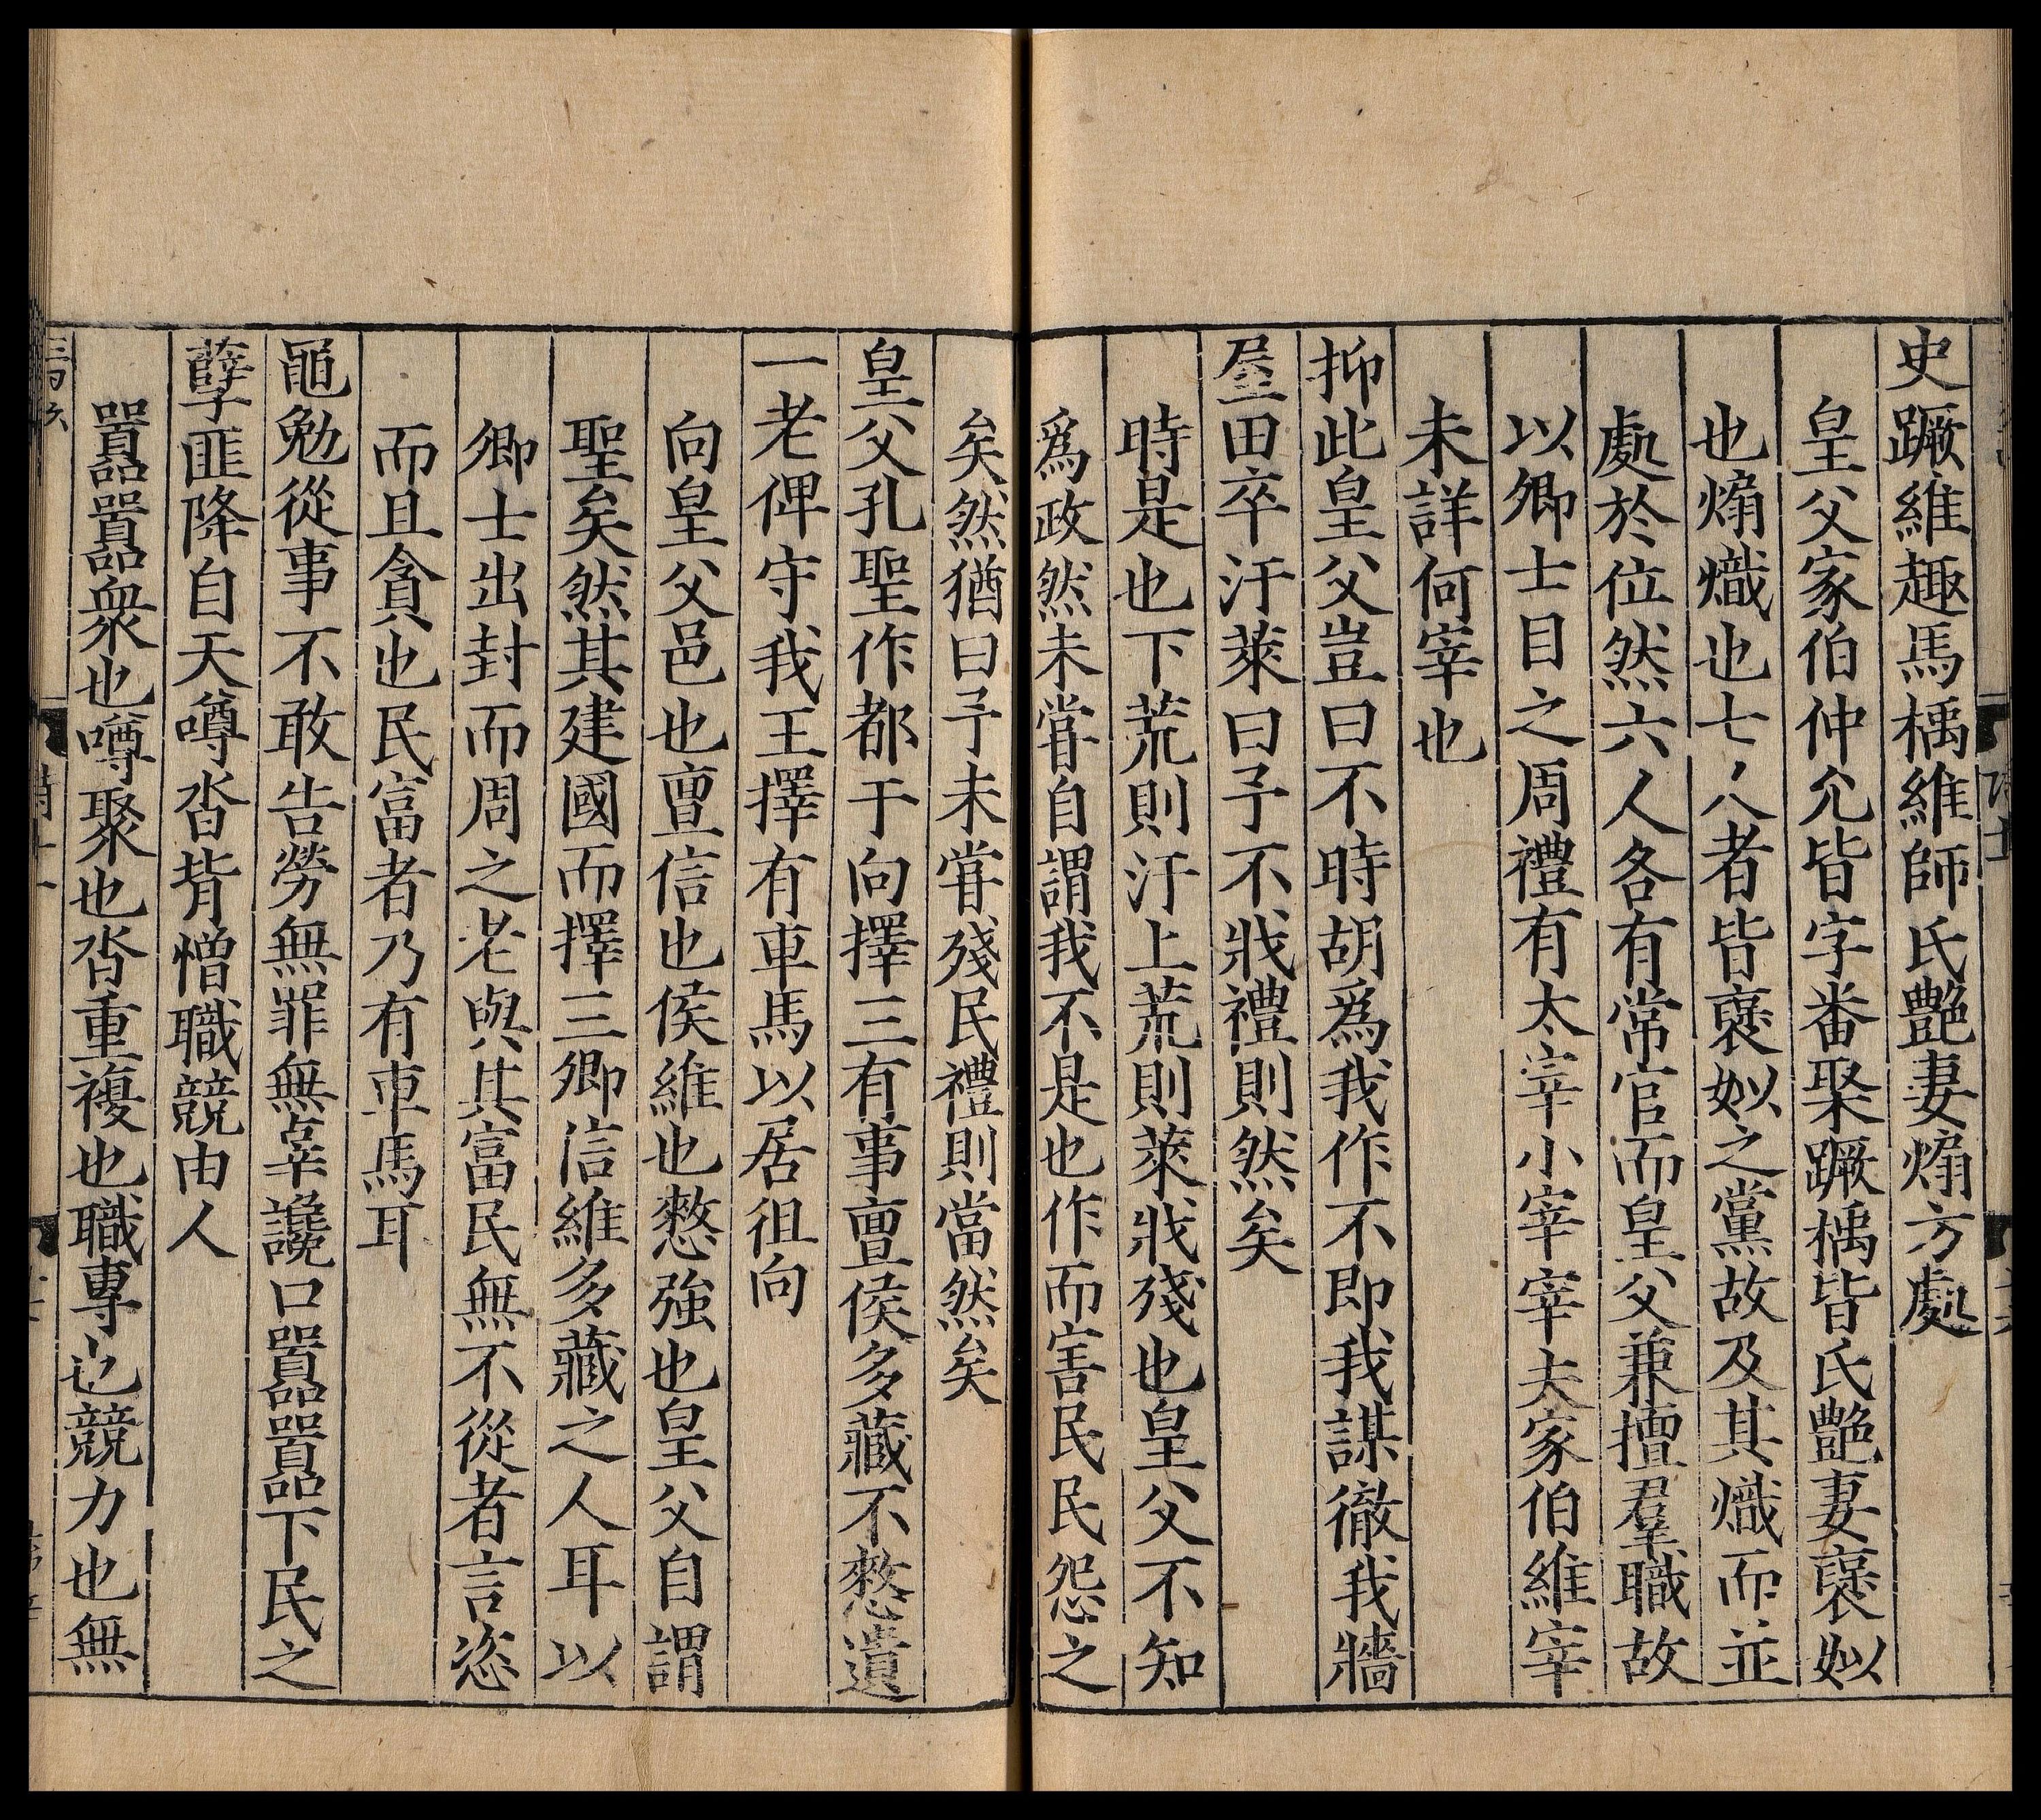 史蹶維趣馬楀維師氏艷妻煽方處
皇父家伯仲允皆字番聚蹶楀皆氏艷妻褒姒
也煽熾也七人者皆褒姒之黨故及其熾而並
處於位然六人各有常官而皇父兼擅羣職故
以卿士目之周禮有太宰小宰宰夫家伯維宰
未詳何宰也
抑此皇父豈曰不時胡爲我作不即我謀徹我牆
屋田卒汙萊曰予不戕禮則然矣
時是也下荒則汙上荒則萊戕殘也皇父不知
爲政然未甞自謂我不是也作而害民民怨之
矣然猶曰予未甞殘民禮則當然矣
皇父孔聖作都于向擇三有事亶侯多藏不憖遺
一老俾守我王擇有車馬以居徂向
向皇父邑也亶信也侯維也憖強也皇父自謂
聖矣然其建國而擇三卿信維多藏之人耳以
卿士出封而周之老與其富民無不從者言恣
而且貪也民富者乃有車馬耳
黽勉從事不敢告勞無罪無辜讒口嚚嚚下民之
孽匪降自天噂沓背憎職競由人
嚚嚚衆也噂聚也沓重複也職專也競力也無